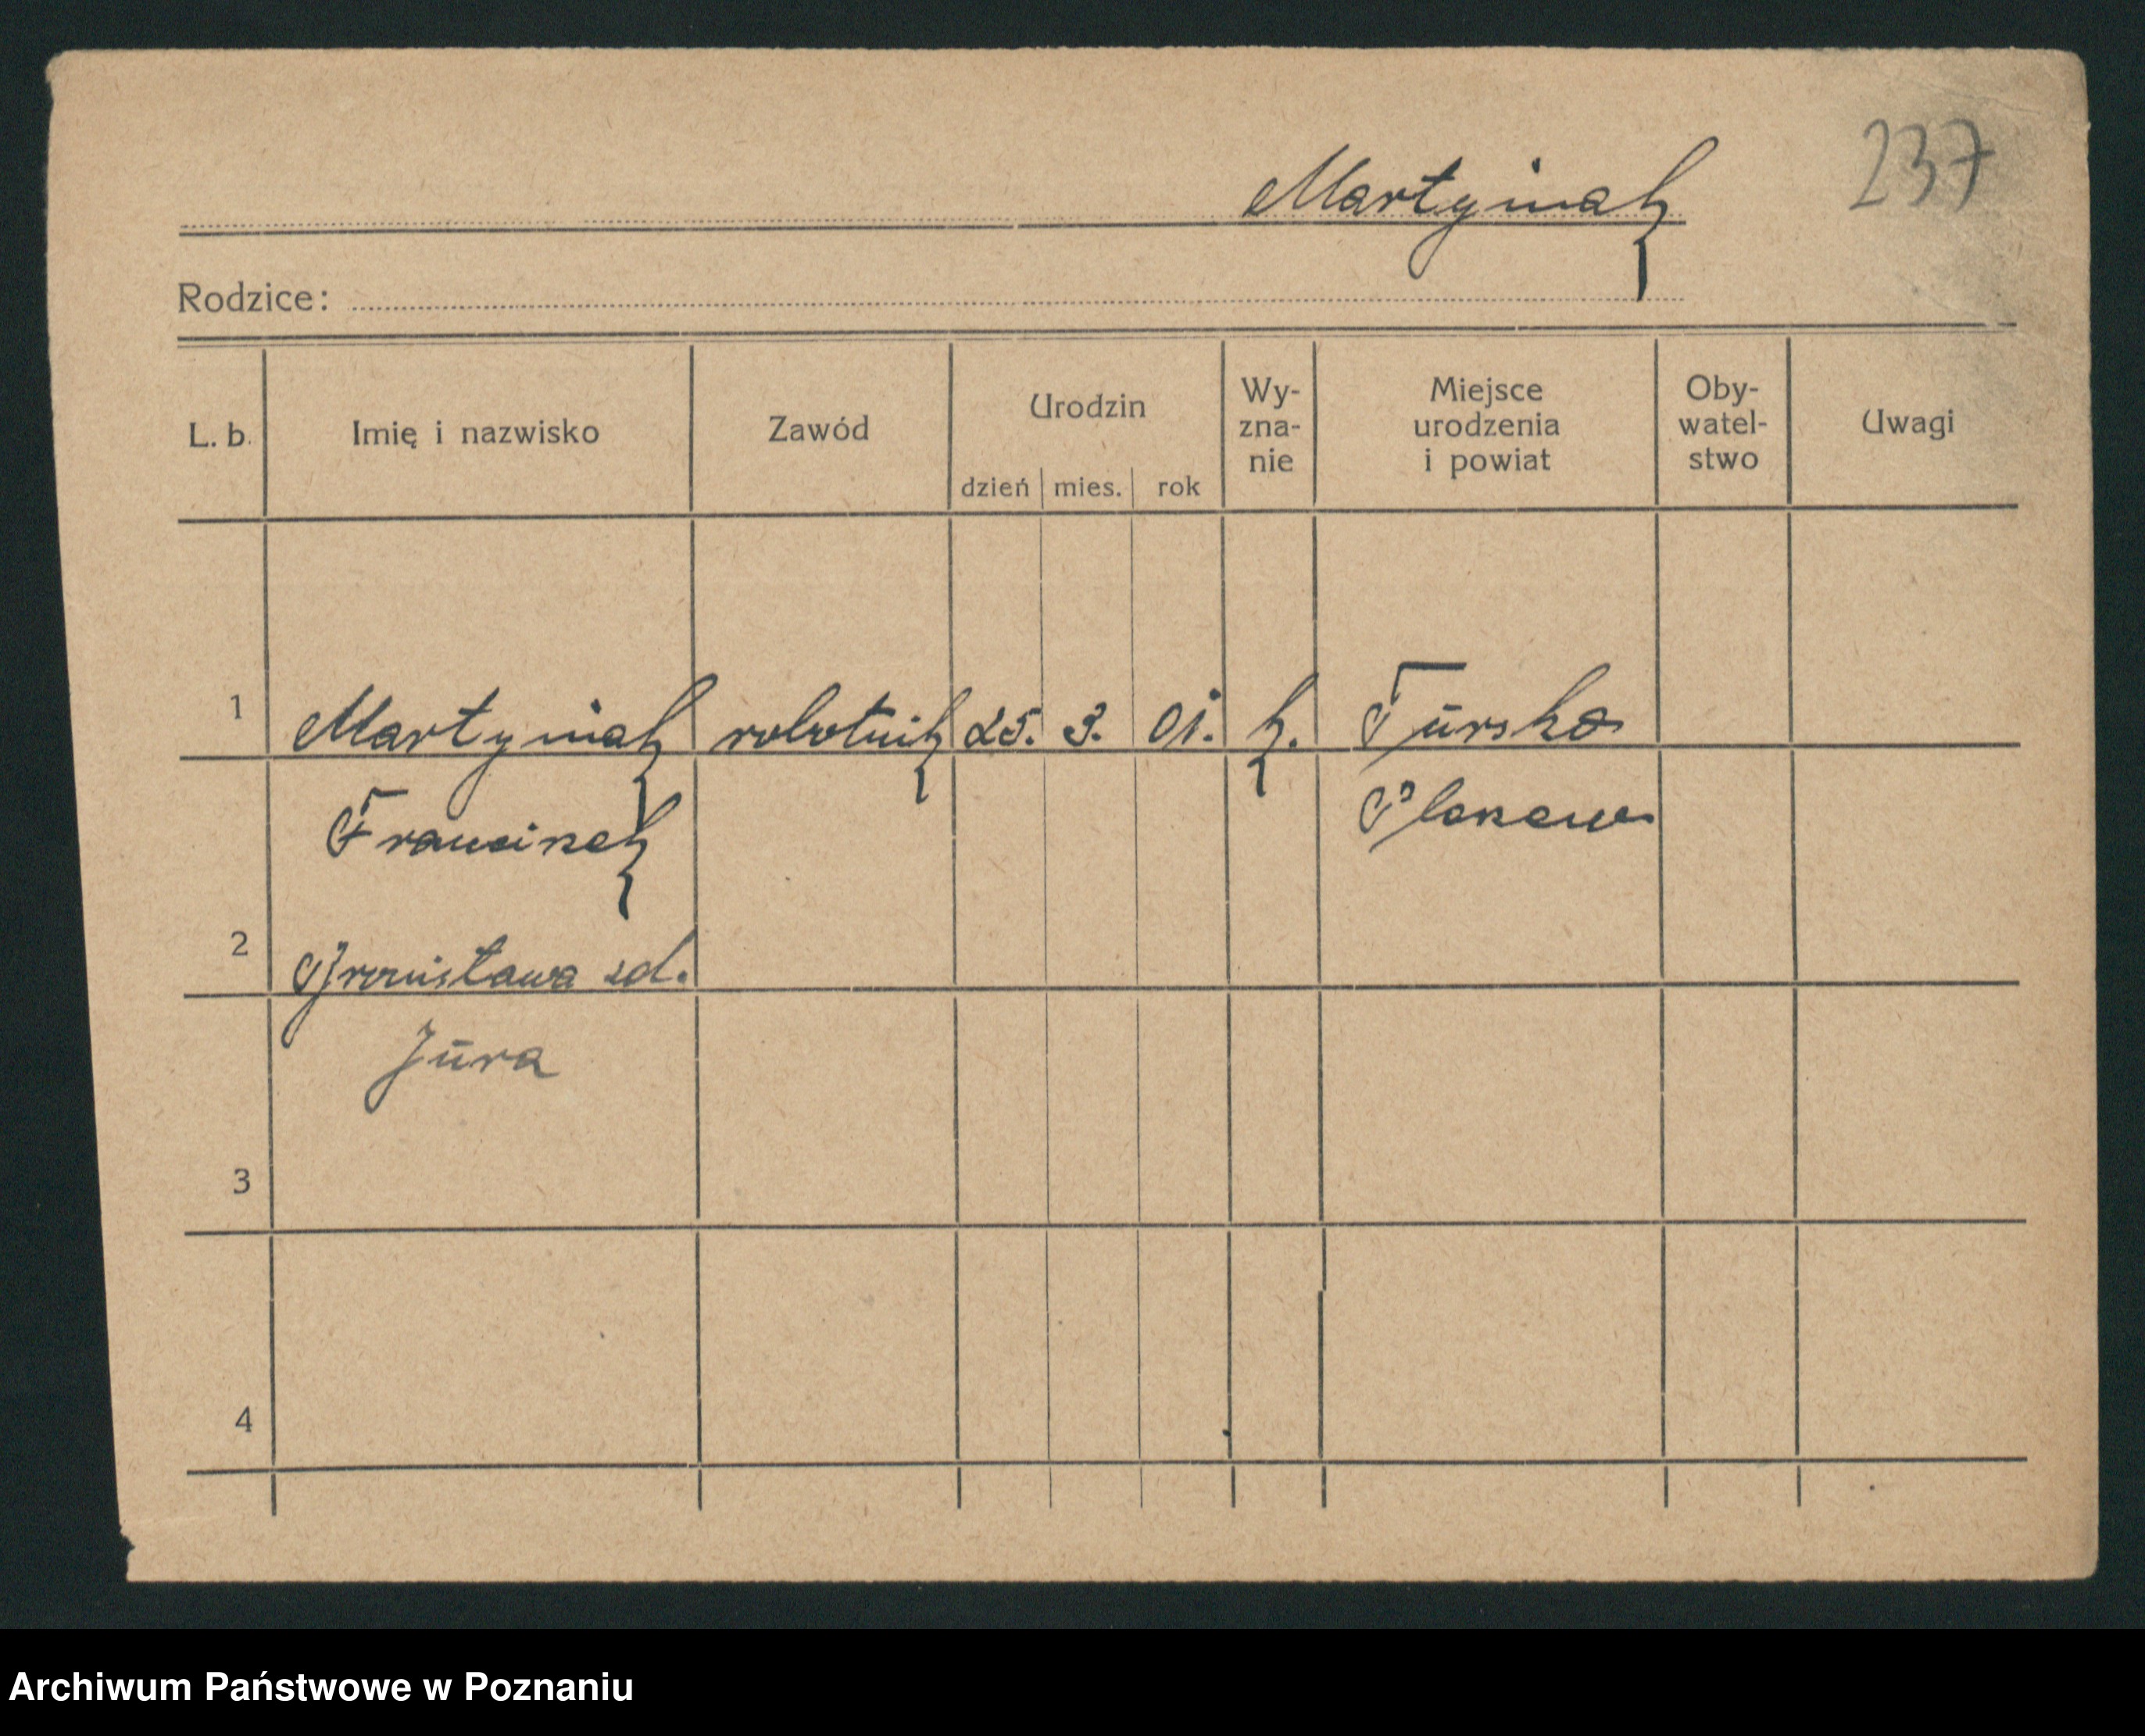 237
Martyniak
Rodzice:
L. b.
Imię i nazwisko
Zawód
Urodzin
dzień
mies.
rok
Wy-
zna-
nie
Miejsce
urodzenia
i powiat
Oby-
watel-
stwo
Uwagi
1 Martyniak robotnik 25. 3. 01. k. Tursko
Franciszek Pleszew
2 Bronisława zd.
Jura
3
4
Archiwum Państwowe w Poznaniu